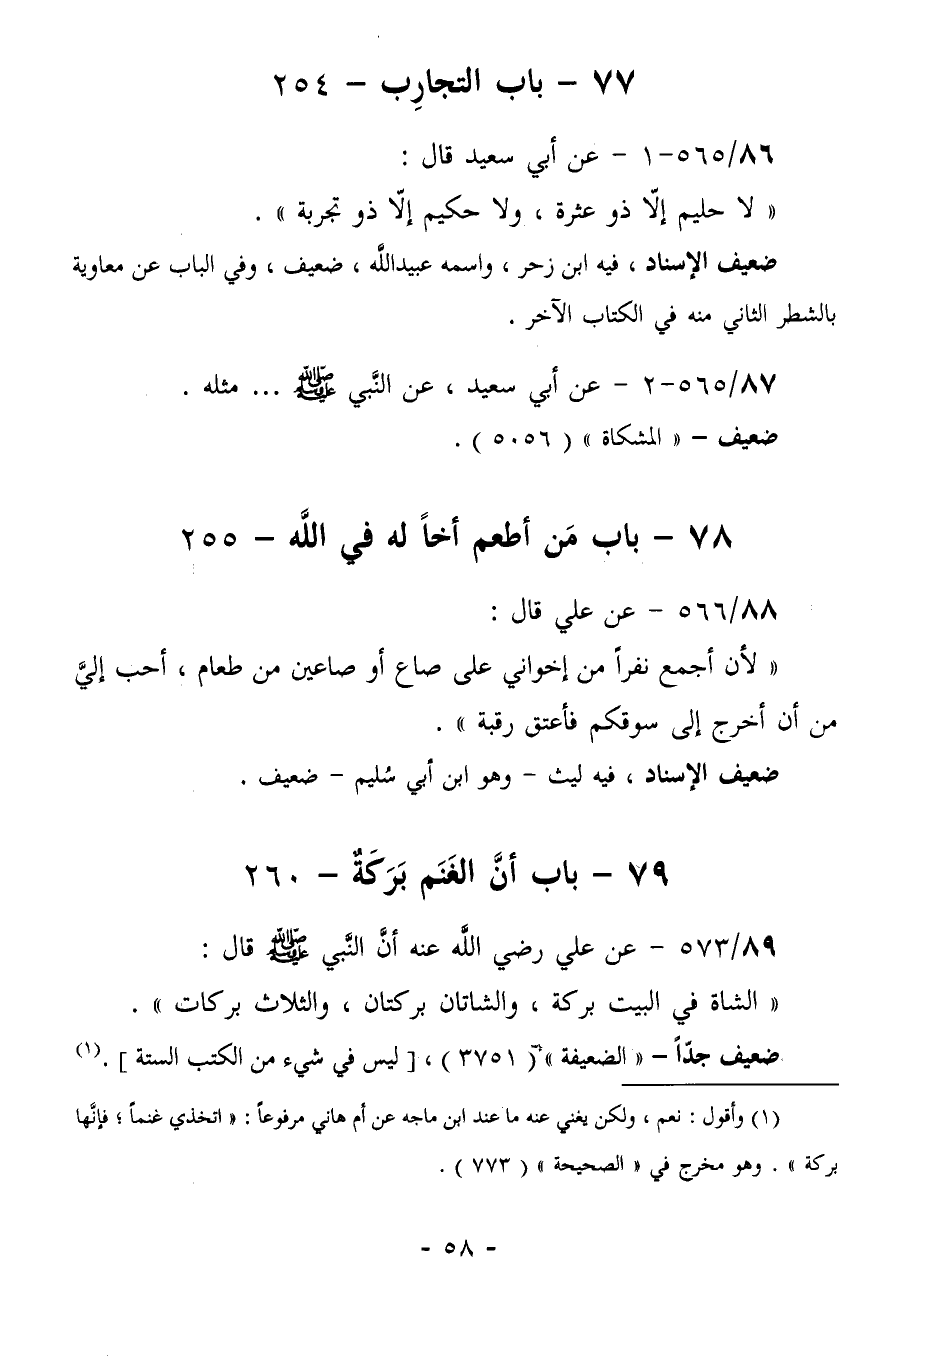 ٧٧ – باب التجارِب – ٢٥٤
٥٦٥/٨٦–١ – عن أبي سعيد قال :
« لا حليم إلّا ذو عثرة ، ولا حكيم إلّا ذو تجربة » .
ضعيف الإسناد ، فيه ابن زحر ، واسمه عبيداللَّه ، ضعيف ، وفي الباب عن معاوية
بالشطر الثاني منه في الكتاب الآخر .
٥٦٥/٨٧–٢ – عن أبي سعيد ، عن النَّبي ﷺ ... مثله .
ضعيف – « المشكاة » ( ٥٠٥٦ ) .
٧٨ – باب مَن أطعم أخاً له في اللَّه – ٢٥٥
٥٦٦/٨٨ – عن علي قال :
« لأن أجمع نفراً من إخواني على صاع أو صاعين من طعام ، أحب إليَّ
من أن أخرج إلى سوقكم فأعتق رقبة » .
ضعيف الإسناد ، فيه ليث – وهو ابن أبي سُليم – ضعيف .
٧٩ – باب أنَّ الغَنَم بَرَكَةٌ – ٢٦٠
٥٧٣/٨٩ – عن علي رضي اللَّه عنه أنَّ النَّبي ﷺ قال :
« الشاة في البيت بركة ، والشاتان بركتان ، والثلاث بركات » .
ضعيف جدّاً – « الضعيفة » ( ٣٧٥١ ) ، [ ليس في شيء من الكتب الستة ] .(١)
(١) وأقول : نعم ، ولكن يغني عنه ما عند ابن ماجه عن أم هاني مرفوعاً : « اتخذي غنماً ؛ فإنَّها
بركة » . وهو مخرج في « الصحيحة » ( ٧٧٣ ) .
- ٥٨ -